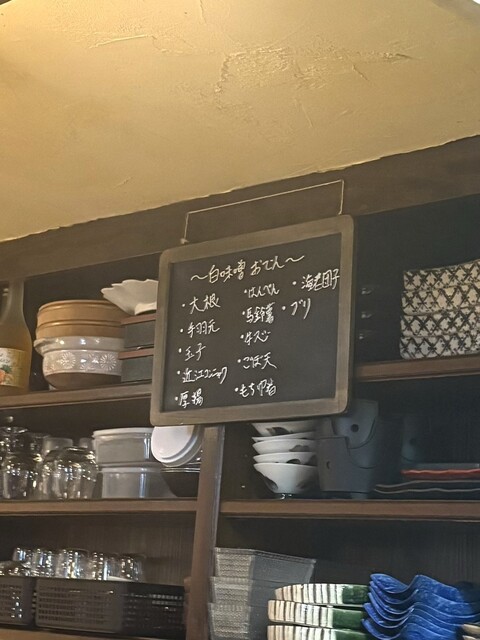 ～白味噌おでん～
・大根
・手羽元
・玉子
・近江コンニャク
・厚揚
・はんぺん
・馬鈴薯
・牛スジ
・ごぼ天
・もち巾着
・海老団子
・ブリ